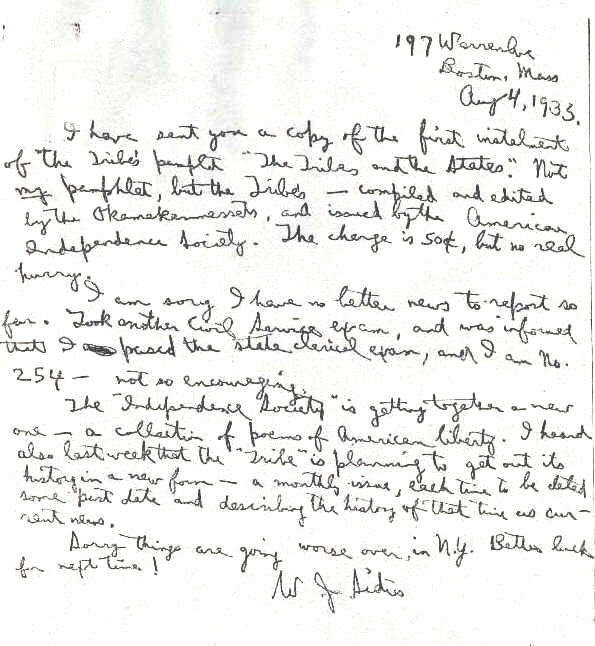 197 Warren Ave
Boston, Mass
Aug 4, 1933.
I have sent you a copy of the first instalment
of "the Tribe's pamphlet "The Tribes and the States." Not
my pamphlet, but the Tribe's — compiled and edited
by the Okamakammessets, and issued by the American
Independence Society. The charge is 50¢, but no real
hurry.
I am sorry I have no better news to report so
far. Took another Civil Service exam, and was informed
that I passed the state clerical exam, and I am No.
254 — not so encouraging.
The "Independence Society" is getting together a new
one — a collection of poems of American liberty. I heard
also last week that the "Tribe" is planning to get out its
history in a new form — a monthly issue, each time to be dated
some past date and describing the history of that time as cur-
rent news.
Sorry things are going worse over in N.Y. Better luck
for next time!
W J Sidis